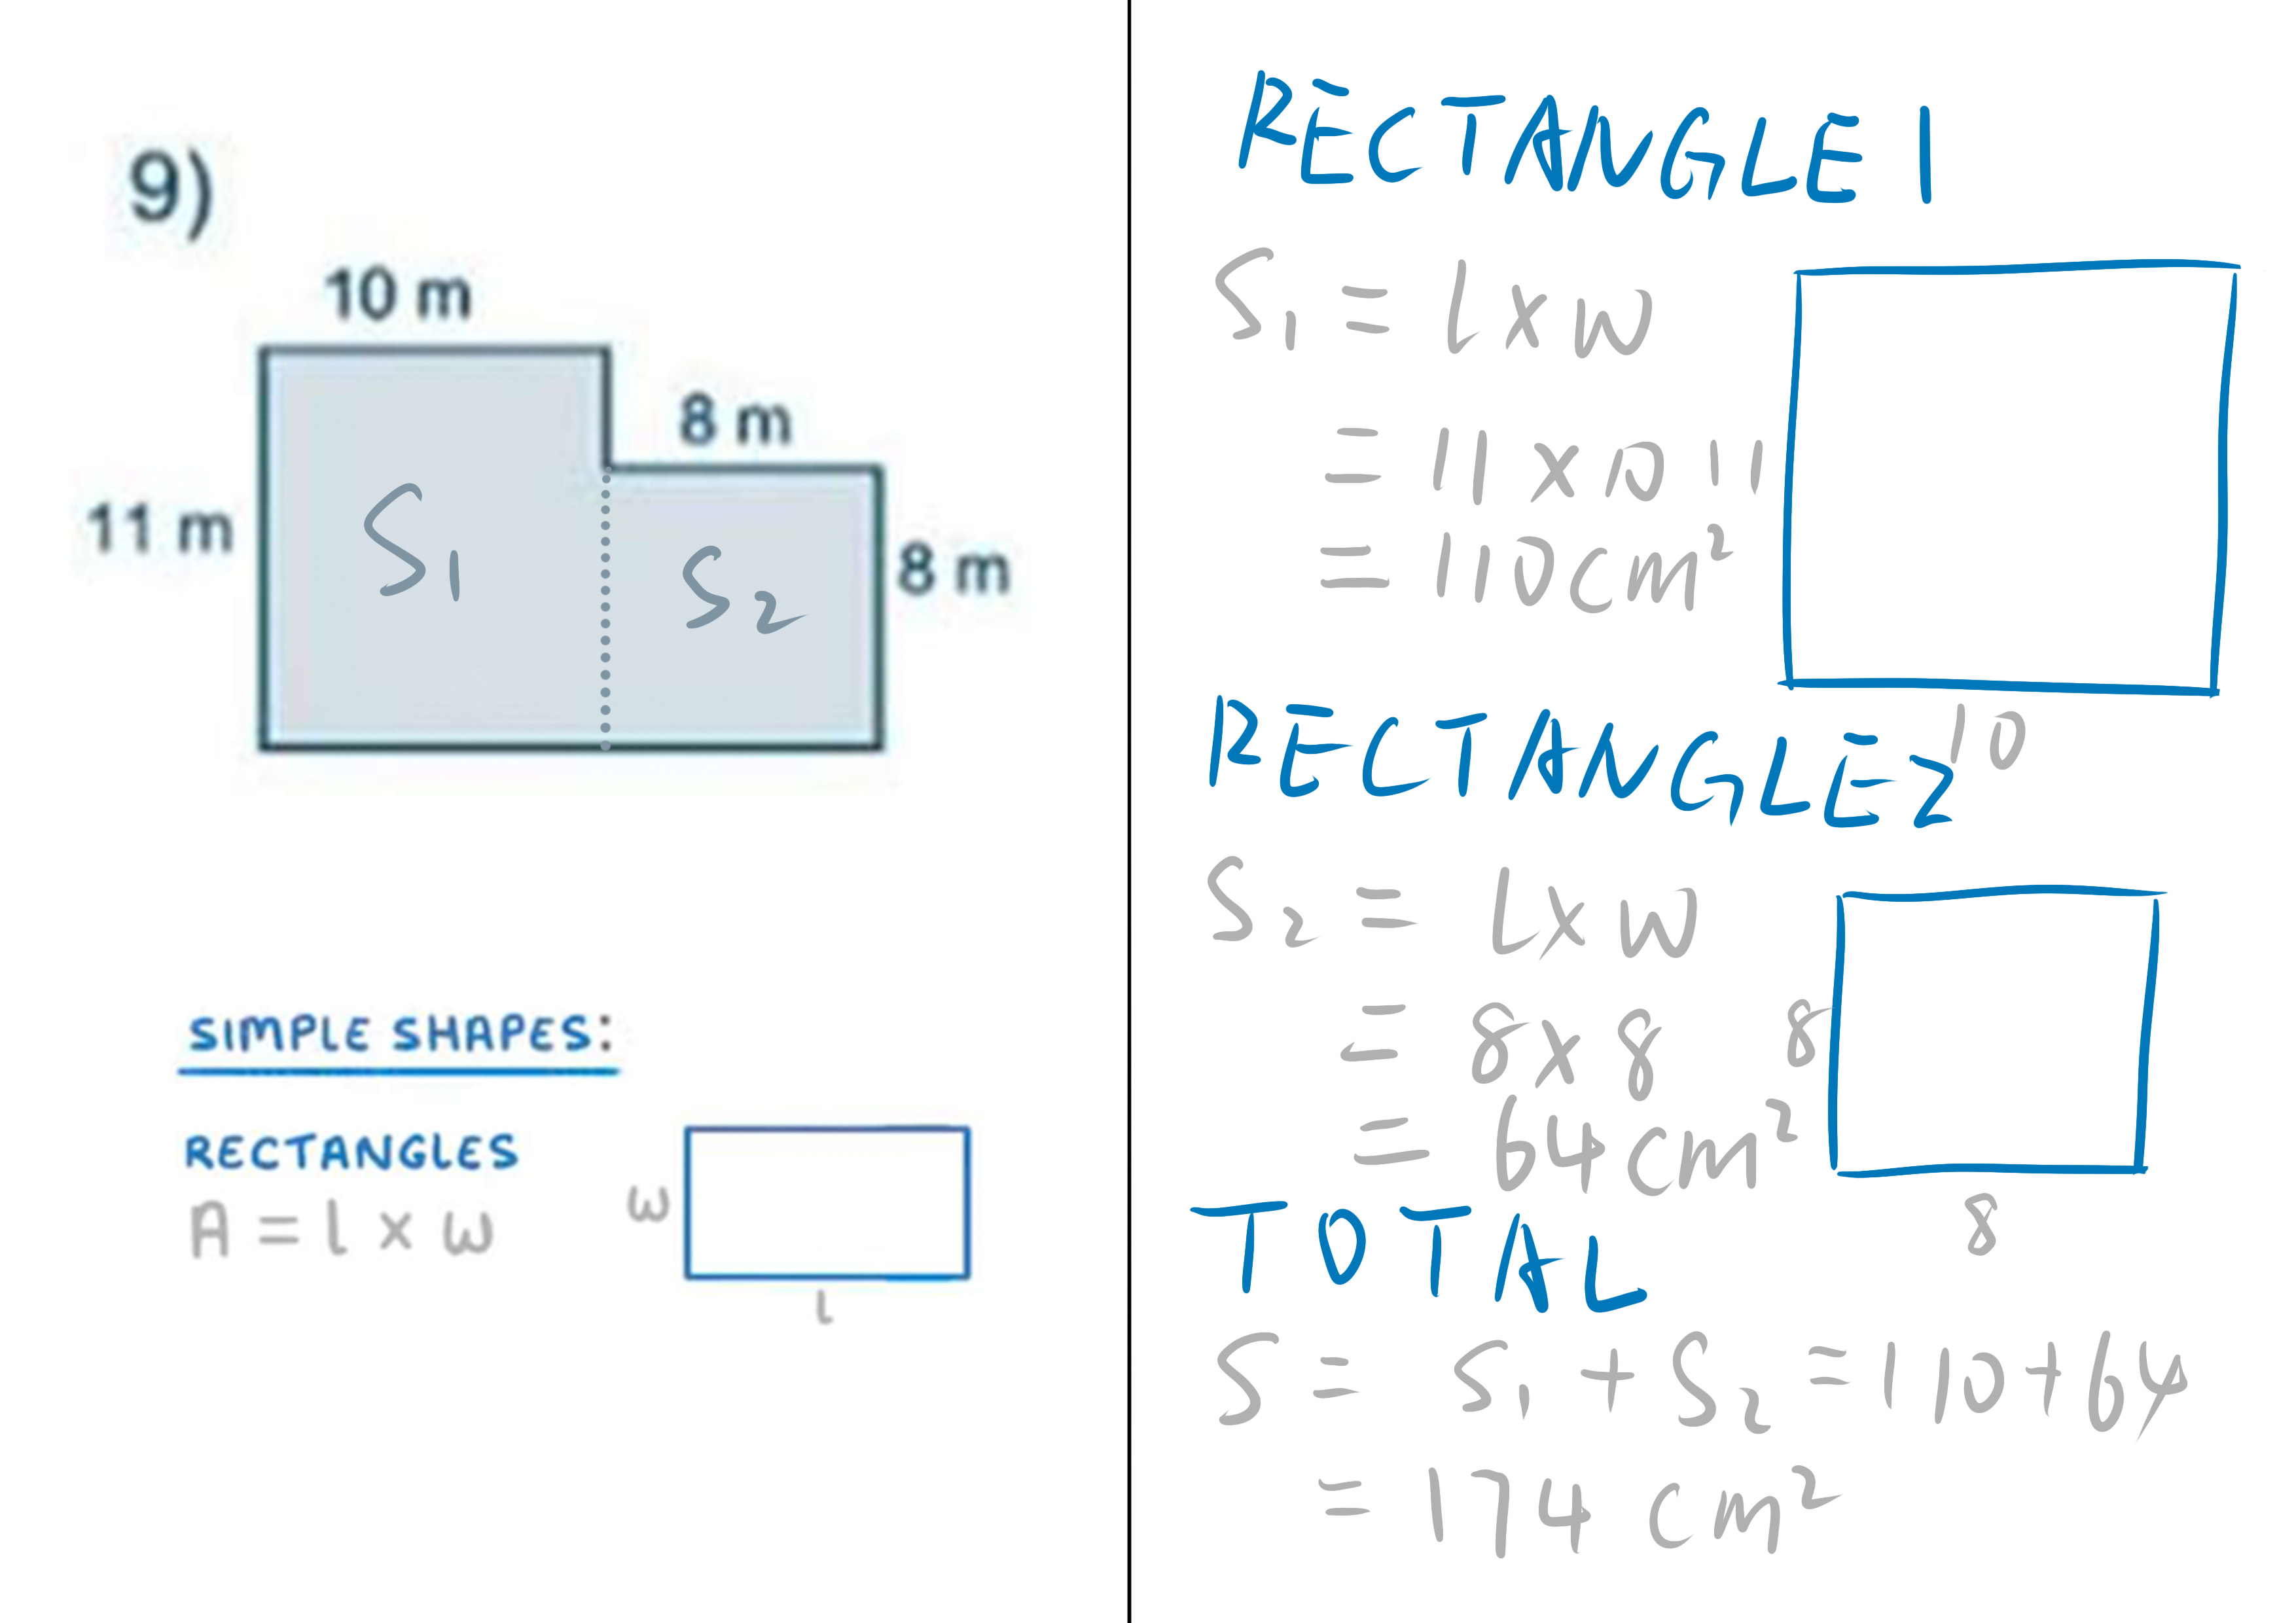 9)
10 m
8 m
11 m
S₁
S₂
8 m
SIMPLE SHAPES:
RECTANGLES
A = l x w
w
l
RECTANGLE 1
S₁ = l x w
= 11 x 10
11
= 110cm²
10
RECTANGLE 2
S₂ = L x w
= 8 x 8
8
= 64cm²
8
TOTAL
S = S₁ + S₂ = 110 + 64
= 174 cm²